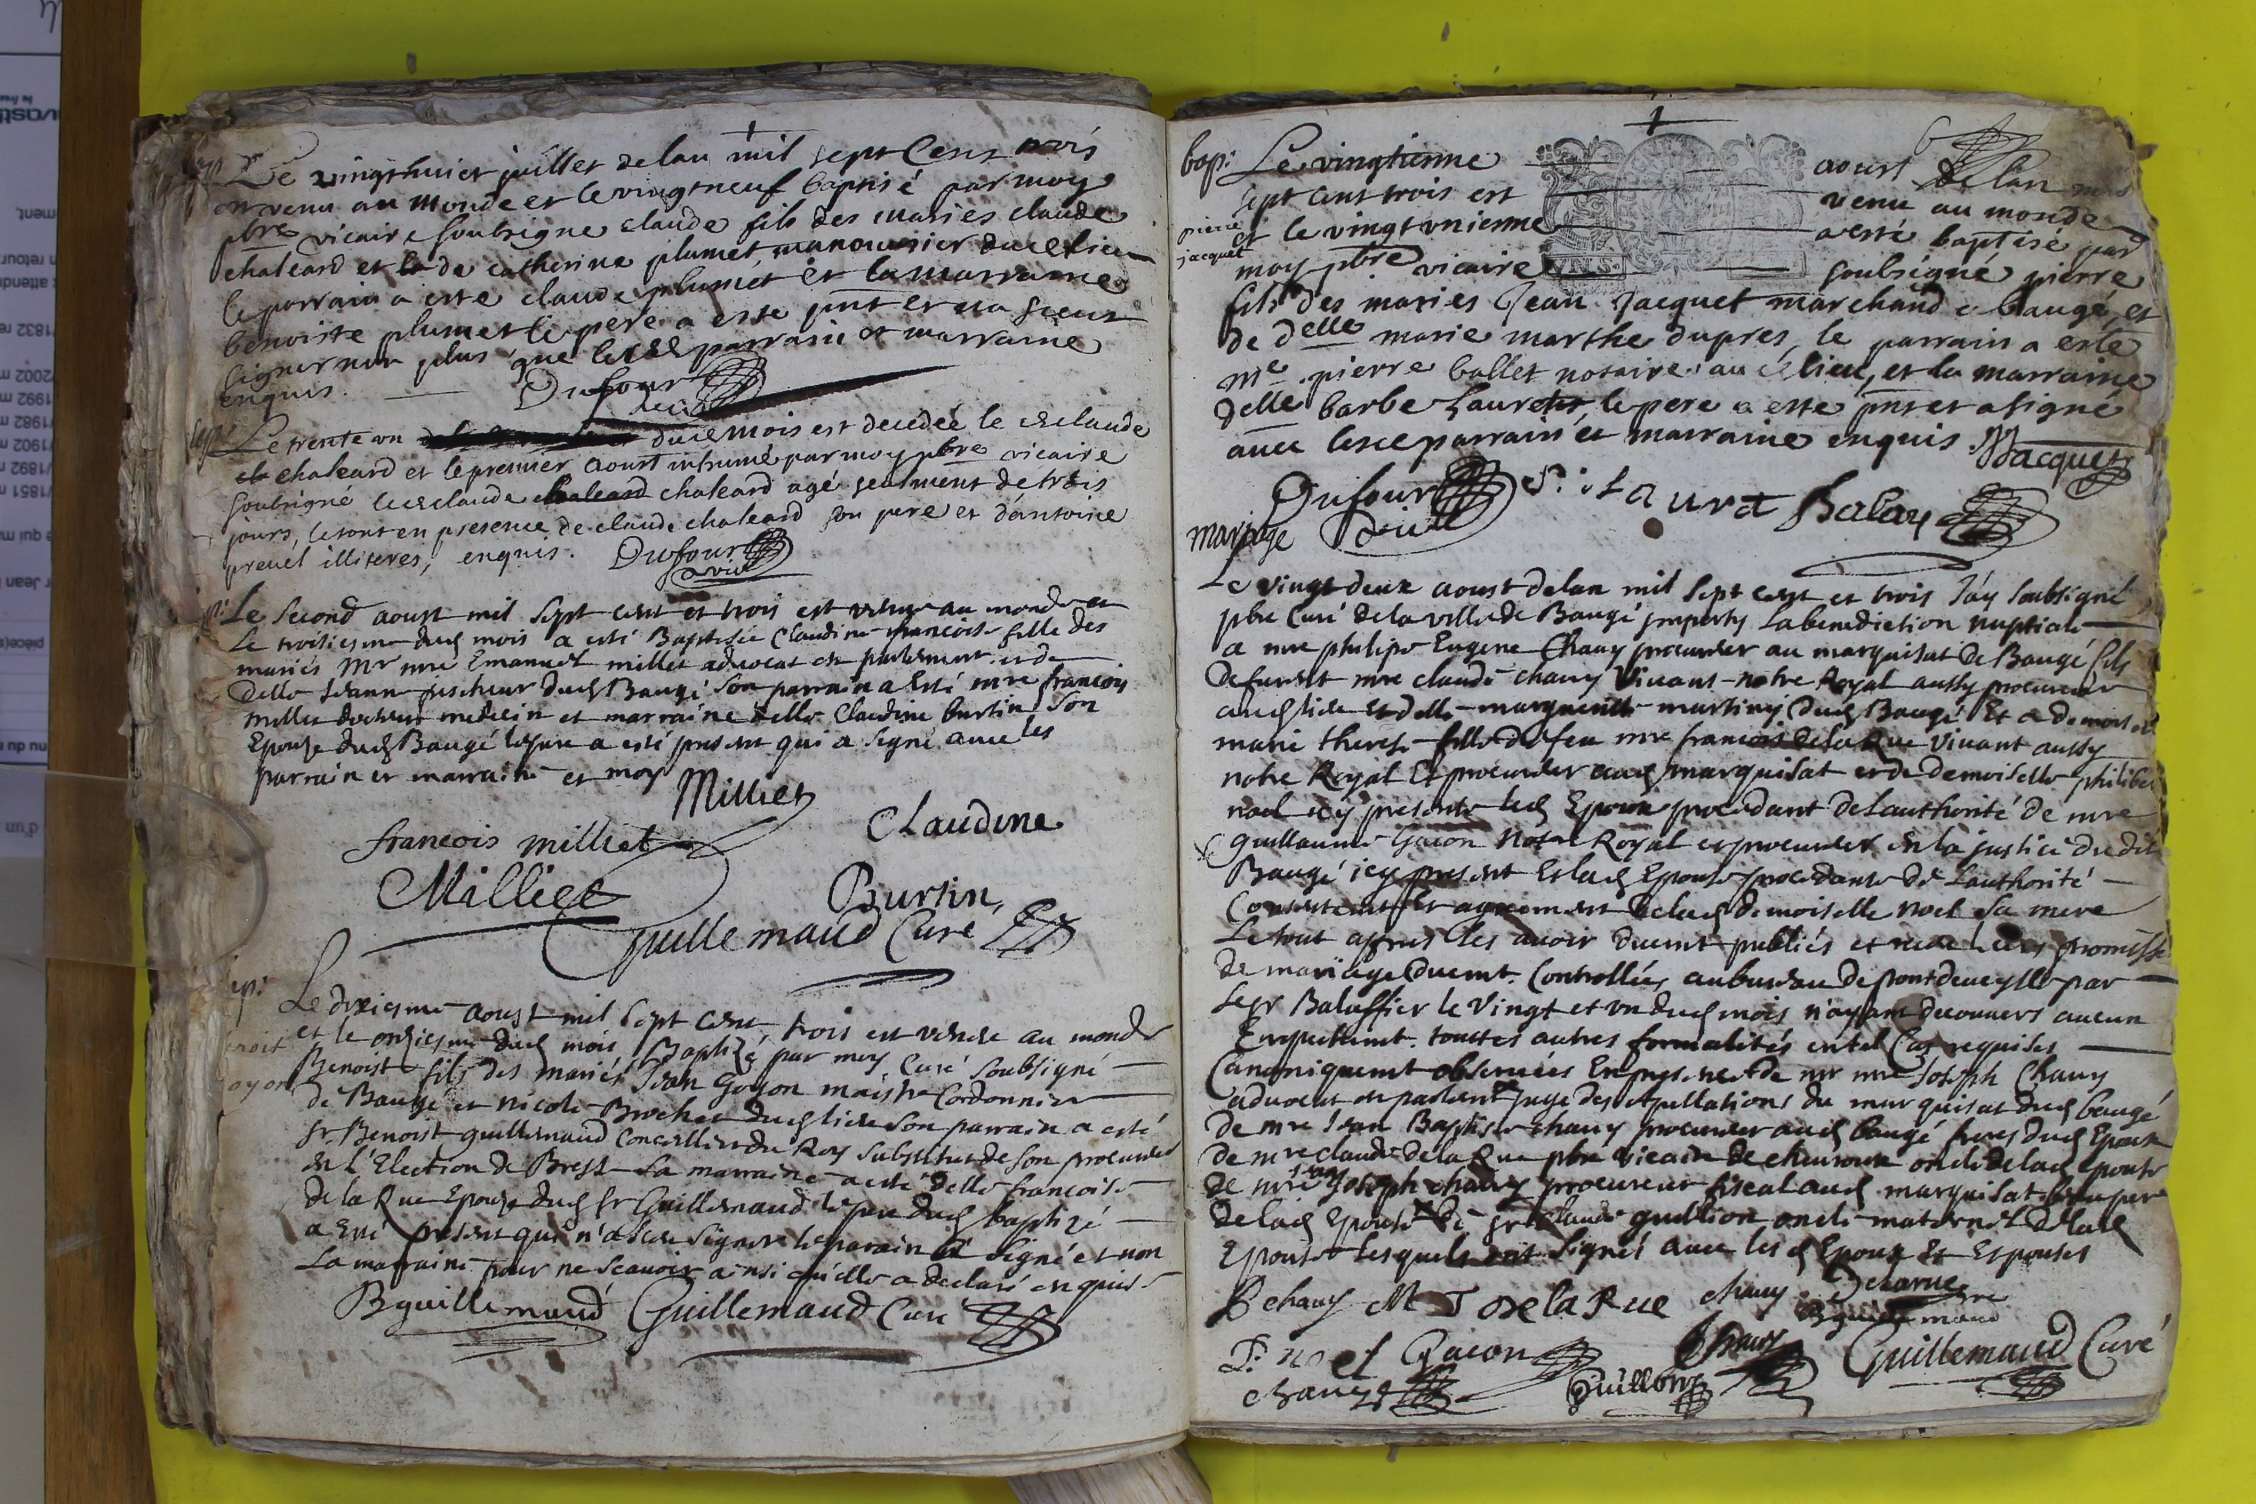 Le vingthuict juillet de lan mil sept Cent trois
est venu au monde et le vingtneuf baptisé par moy
pbre vicaire soubsigne claude fils des maries claude
chaleard et de catherine plumet, manouvrier du ce lieu
le parrain a este claude plumet et la marraine
benoiste plumet le pere a este pnt et na sceut
signer non plus que lesd parrain et marraine
enquis.
Dufour
vic
Le trente un du ce mois est decedée le claude
chaleard et le premier aoust inhumé par moy pbre vicaire
soubsigné led claude chaleard agé seulment de trois
jours, le tout en presence de claude chaleard son pere et d'antoine
prevel illiteres, enquis. Dufour
vic
Le second aoust mil sept cent et trois est venue au monde et
le troisiesme dud mois a esté Baptisée Claudine francoise fille des
mariés Mr mre Emanuel millet advocat en parlement et de
delle Jeanne pischeur dud Baugé son parrain a esté mre francois
millet docteur medecin et marraine delle Claudine burtin son
Epouse dud Baugé le pere a esté present qui a signé avec les
parrain et marraine et moy
Milliet
francois milliet
Claudine
Milliet
Burtin,
Guillemaud Curé
Le dixiesme aoust mil sept cent trois est venu au monde
et le onziesme dud mois Baptizé par moy Curé soubsigné
Benoist fils des mariés Jean Goyon maistre Cordonnier
de Baugé et nicole Brochet dud lieu son parrain a esté
sr Benoist guillemaud Conseiller du Roy substitut de son procureur
en l'Election de Bresse la marraine a esté delle francoise
de la Rue Epouse dud sr Guillemaud le pere dud baptizé
a esté present qui n'a sceu signer le parain a signé et non
La marraine pour ne scavoir ainsi qu'elle a declaré enquise
Bguillemaud Guillemaud Curé
bap: Le vingtienne aoust de lan mil
sept cent trois est venu au monde
pierre
jacquet
et le vingt vnienne a esté baptisé par
moy pbre vicaire soubsigné pierre
fils des maries Jean Jacquet marchand a baugé, et
de delle marie marthe dupres, le parrain a este
me pierre ballet notaire au ce lieu, et la marraine
delle barbe Lauret, le pere a este pnt et a signé
avec lesd parrain et marraine enquis. Jacquet
Dufour
vic
Lauret Balay
mariage
Le vingt deux aoust de lan mil sept cent et trois J'ay soubsigné
pbre Curé de la ville de Baugé imparty La benediction nuptiale
a mre philipe Eugene Chavy procureur au marquisat de Baugé fils
de funct mre claude chavy Vivant notre Royal aussy procureur
aud lieu et delle marguerite martiny dud Baugé Et a demoiselle
marie therese fille de feu mre francois de la Rue Vivant aussy
notre Royal Et procureur aud marquisat et de demoiselle philiber
noel icy presente led Epoux procedant de Lauthorité de mre
guillaume Gacon Notre Royal et procureur en la justice du dit
Baugé icy present Et lad Epouse procedante de Lauthorité
Consentement Et agreement de lad demoiselle noel sa mere
Le tout apres les avoir duemt publiés et promesse
de mariage duemt Controllées au bureau de pontdeveylle par
le sr Baluffier le Vingt et un dud mois n'ayant decouvert aucun
Empechemt. touttes autres formalités en tel Cas requises
Canoniquemt observées En presence de mr mre Joseph Chavy
advocat en parlemt Juge des apellations du marquisat dud baugé
de mre Jean Baptiste chavy procureur aud baugé freres dud Epoux
de mre claude de la Rue pbre vicaire de chevroux oncle de lad epouse
de mre Joseph chavy procureur fiscal aud marquisat
de lad Epouse de sr claude guillion oncle maternel de lad
Epouse Lesquels ont signés avec les d Epoux Et Espouses
P E chavy M T Delarue chavy Delarue
P: noel Gacon Chavy Guillemaud Curé
chavy Guillion